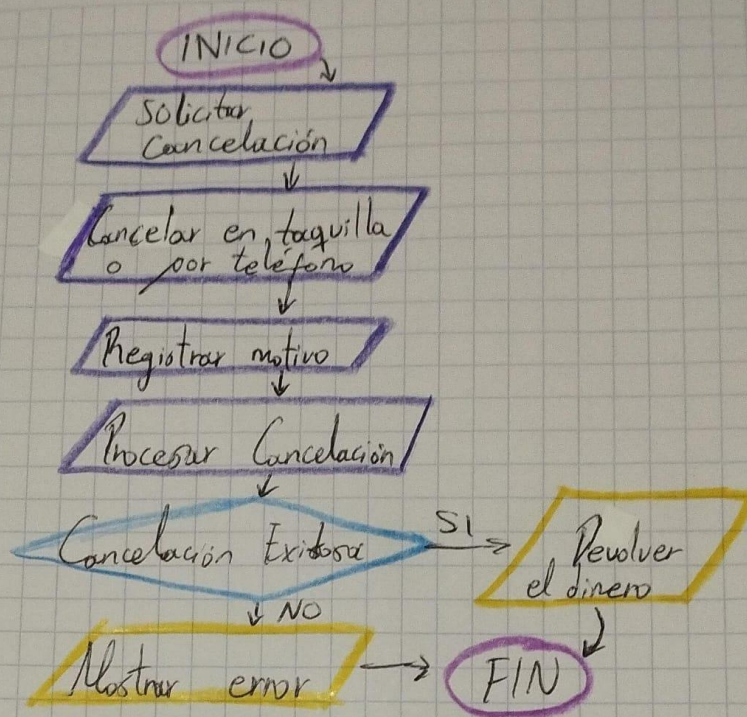 INICIO
Solicitar
Cancelación
Cancelar en taquilla
o por teléfono
Registrar motivo
Procesar Cancelación
Cancelación Exitosa
SI
Devolver
el dinero
NO
Mostrar error
FIN